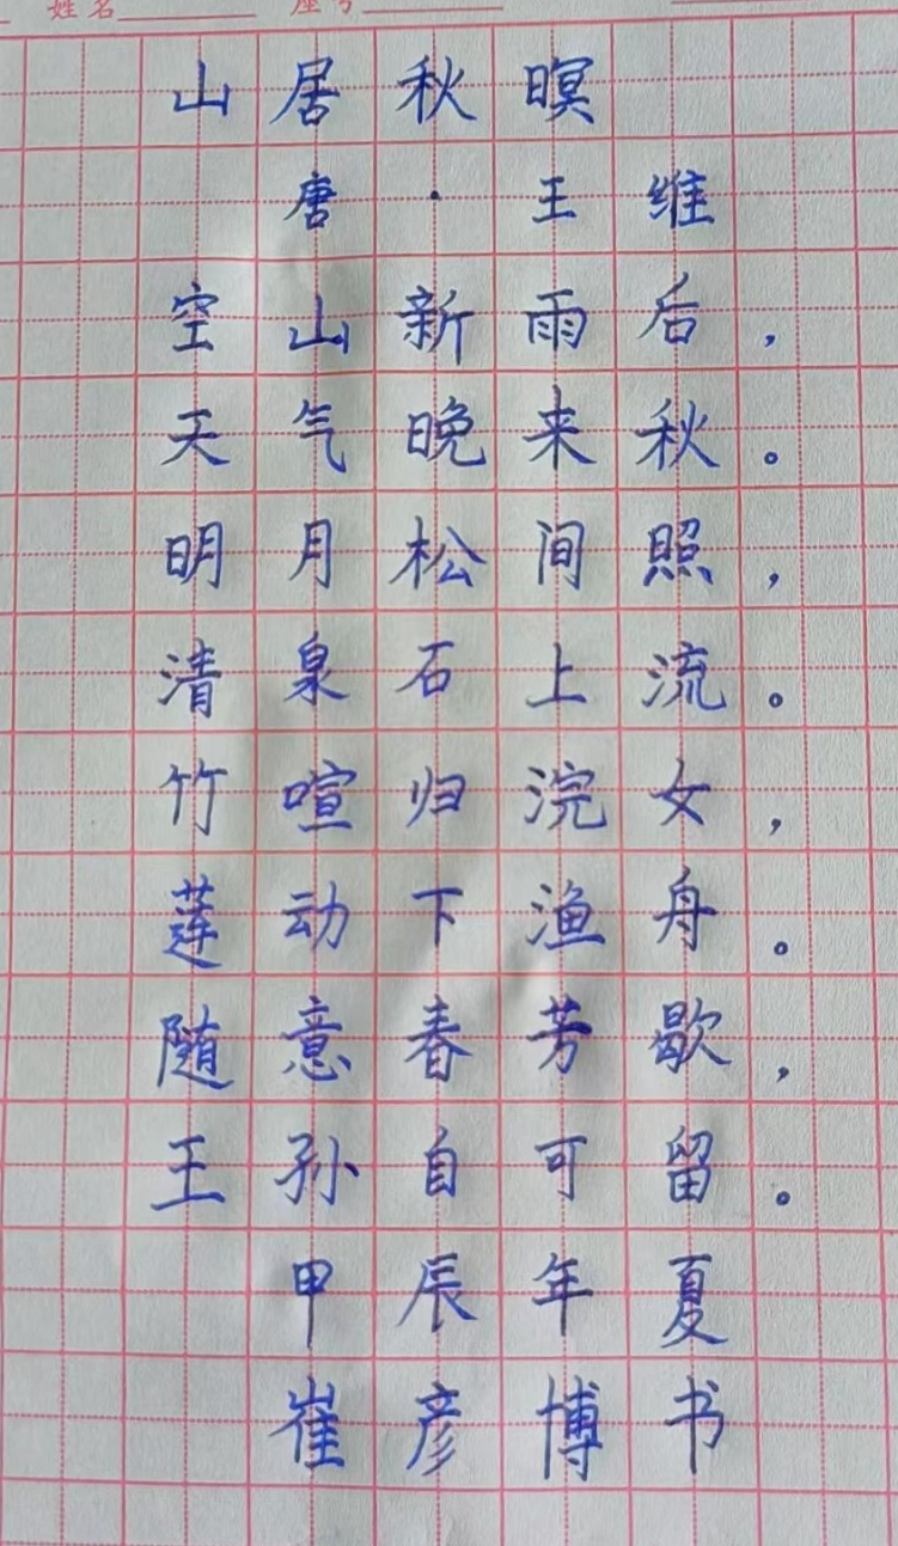 姓名 座号
山居秋暝
唐·王维
空山新雨后，
天气晚来秋。
明月松间照，
清泉石上流。
竹喧归浣女，
莲动下渔舟。
随意春芳歇，
王孙自可留。
甲辰年夏
崔彦博书